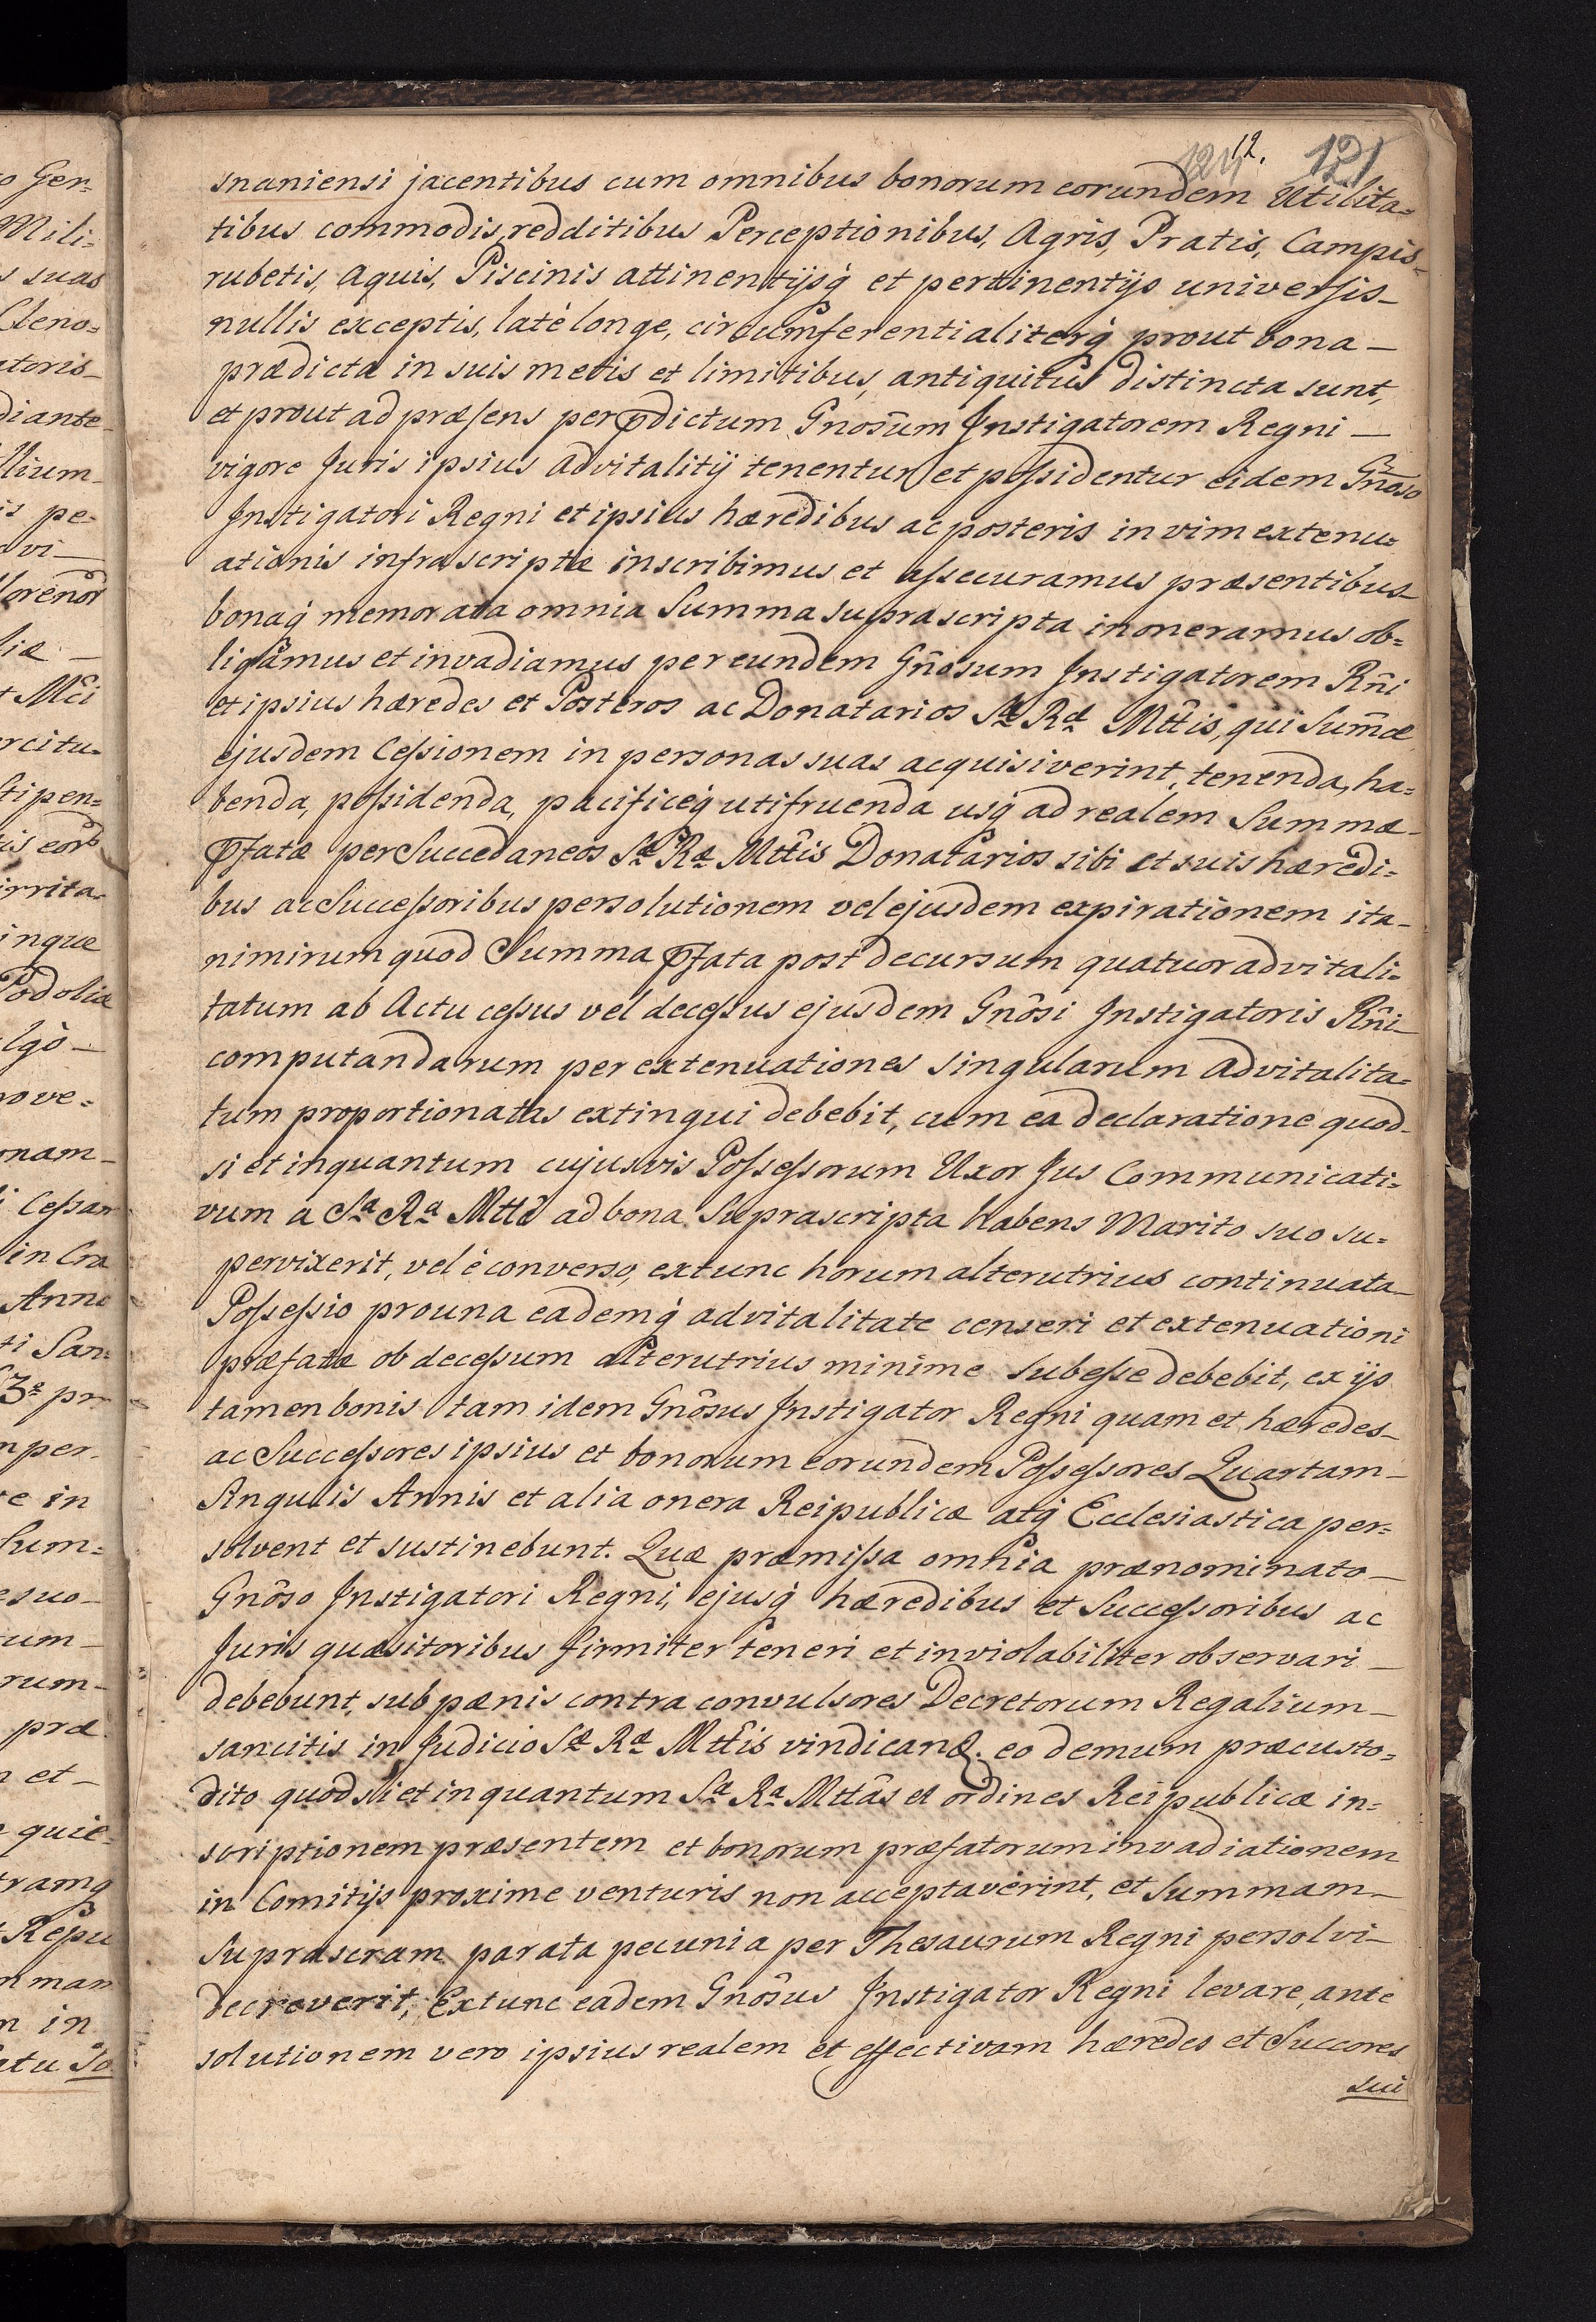 12. 121
snaniensi jacentibus cum omnibus bonorum eorundem Utilita=
tibus commodis, redditibus Perceptionibus, Agris, Pratis, Campis
rubetis, Aquis, Piscinis attinentijsq́ et pertinentijs universis_
nullis exceptis, latè longe, circumferentialiterq́ prout bona _
prædicta in suis metis et limitibus, antiquitus distincta sunt,
et prout ad præsens per p̄dictum Gnos̃um Instigatorem Regni _
vigore Juris ipsius Advitalitÿ tenentur et possidentur eidem Gño̅so
Instigatori Regni et ipsius hæredibus ac posteris in vim extenu=
ationis infrascriptæ inscribimus et assecuramus præsentibus_
bonaq́ memorata omnia Summa suprascripta inoneramus ob=
ligamus et invadiamus per eundem Gñosum Instigatorem Rñi
et ipsius hæredes et Posteros ac Donatarios Sæ Ræ Mttis, qui Sum̃æ
ejusdem Cessionem in personas suas acquisiverint, tenenda, ha=
benda, possidenda, pacificeq́ utifruenda usq́ ad realem Summæ_
p̄fatæ per Succedaneos Sæ Ræ Mttis Donatarios sibi et suis hæredi=
bus ac Successoribus persolutionem vel ejusdem expirationem ita_
nimirum quod Summa p̄fata post decursum quatuor advitali=
tatum ab Actu cessus vel decessus ejusdem Gnôsi Instigatoris Rñi_
computandarum per extenuationes singularum Advitalita=
tum proportionatas extingui debebit, cum ea declaratione quod_
si et inquantum cujusvis Possessorum Uxor Jus Communicati=
vum a Sa Ra Mtte ad bona Suprascripta habens Marito suo su=
pervixerit, vel è converso, extunc horum alterutrius continuata_
Possessio pro una eademq́ advitalitate censeri et extenuationi
præfatæ ob decessum alterutrius minime subesse debebit, ex ijs
tamen bonis tam idem Gnôsus Instigator Regni quam et hæredes_
ac Successores ipsius et bonorum eorundem Possessores Quartam_
Singulis Annis et alia onera Reipublicæ atq́ Ecclesiastica per=
solvent et sustinebunt. Quæ præmissa omnia prænominato_
Gnôso Instigatori Regni, ejusq́ hæredibus et Successoribus ac
Juris quæsitoribus firmiter teneri et inviolabiliter observari _
debebunt, sub pænis contra convulsores Decretorum Regalium_
sancitis in Judicio Sæ Ræ Mttis vindicand. eo demum præcusto=
dito quod si et inquantum Sa Ra Mttâs et ordines Reipublicæ in=
scriptionem præsentem et bonorum præfatorum invadiationem
in Comitijs proxime venturis non acceptaverint, et Summam_
Suprascram parata pecunia per Thesaurum Regni persolvi_
decreverit, Extunc eadem Gnôsus Instigator Regni levare, ante
solutionem vero ipsius realem et effectivam hæredes et Succores
sui